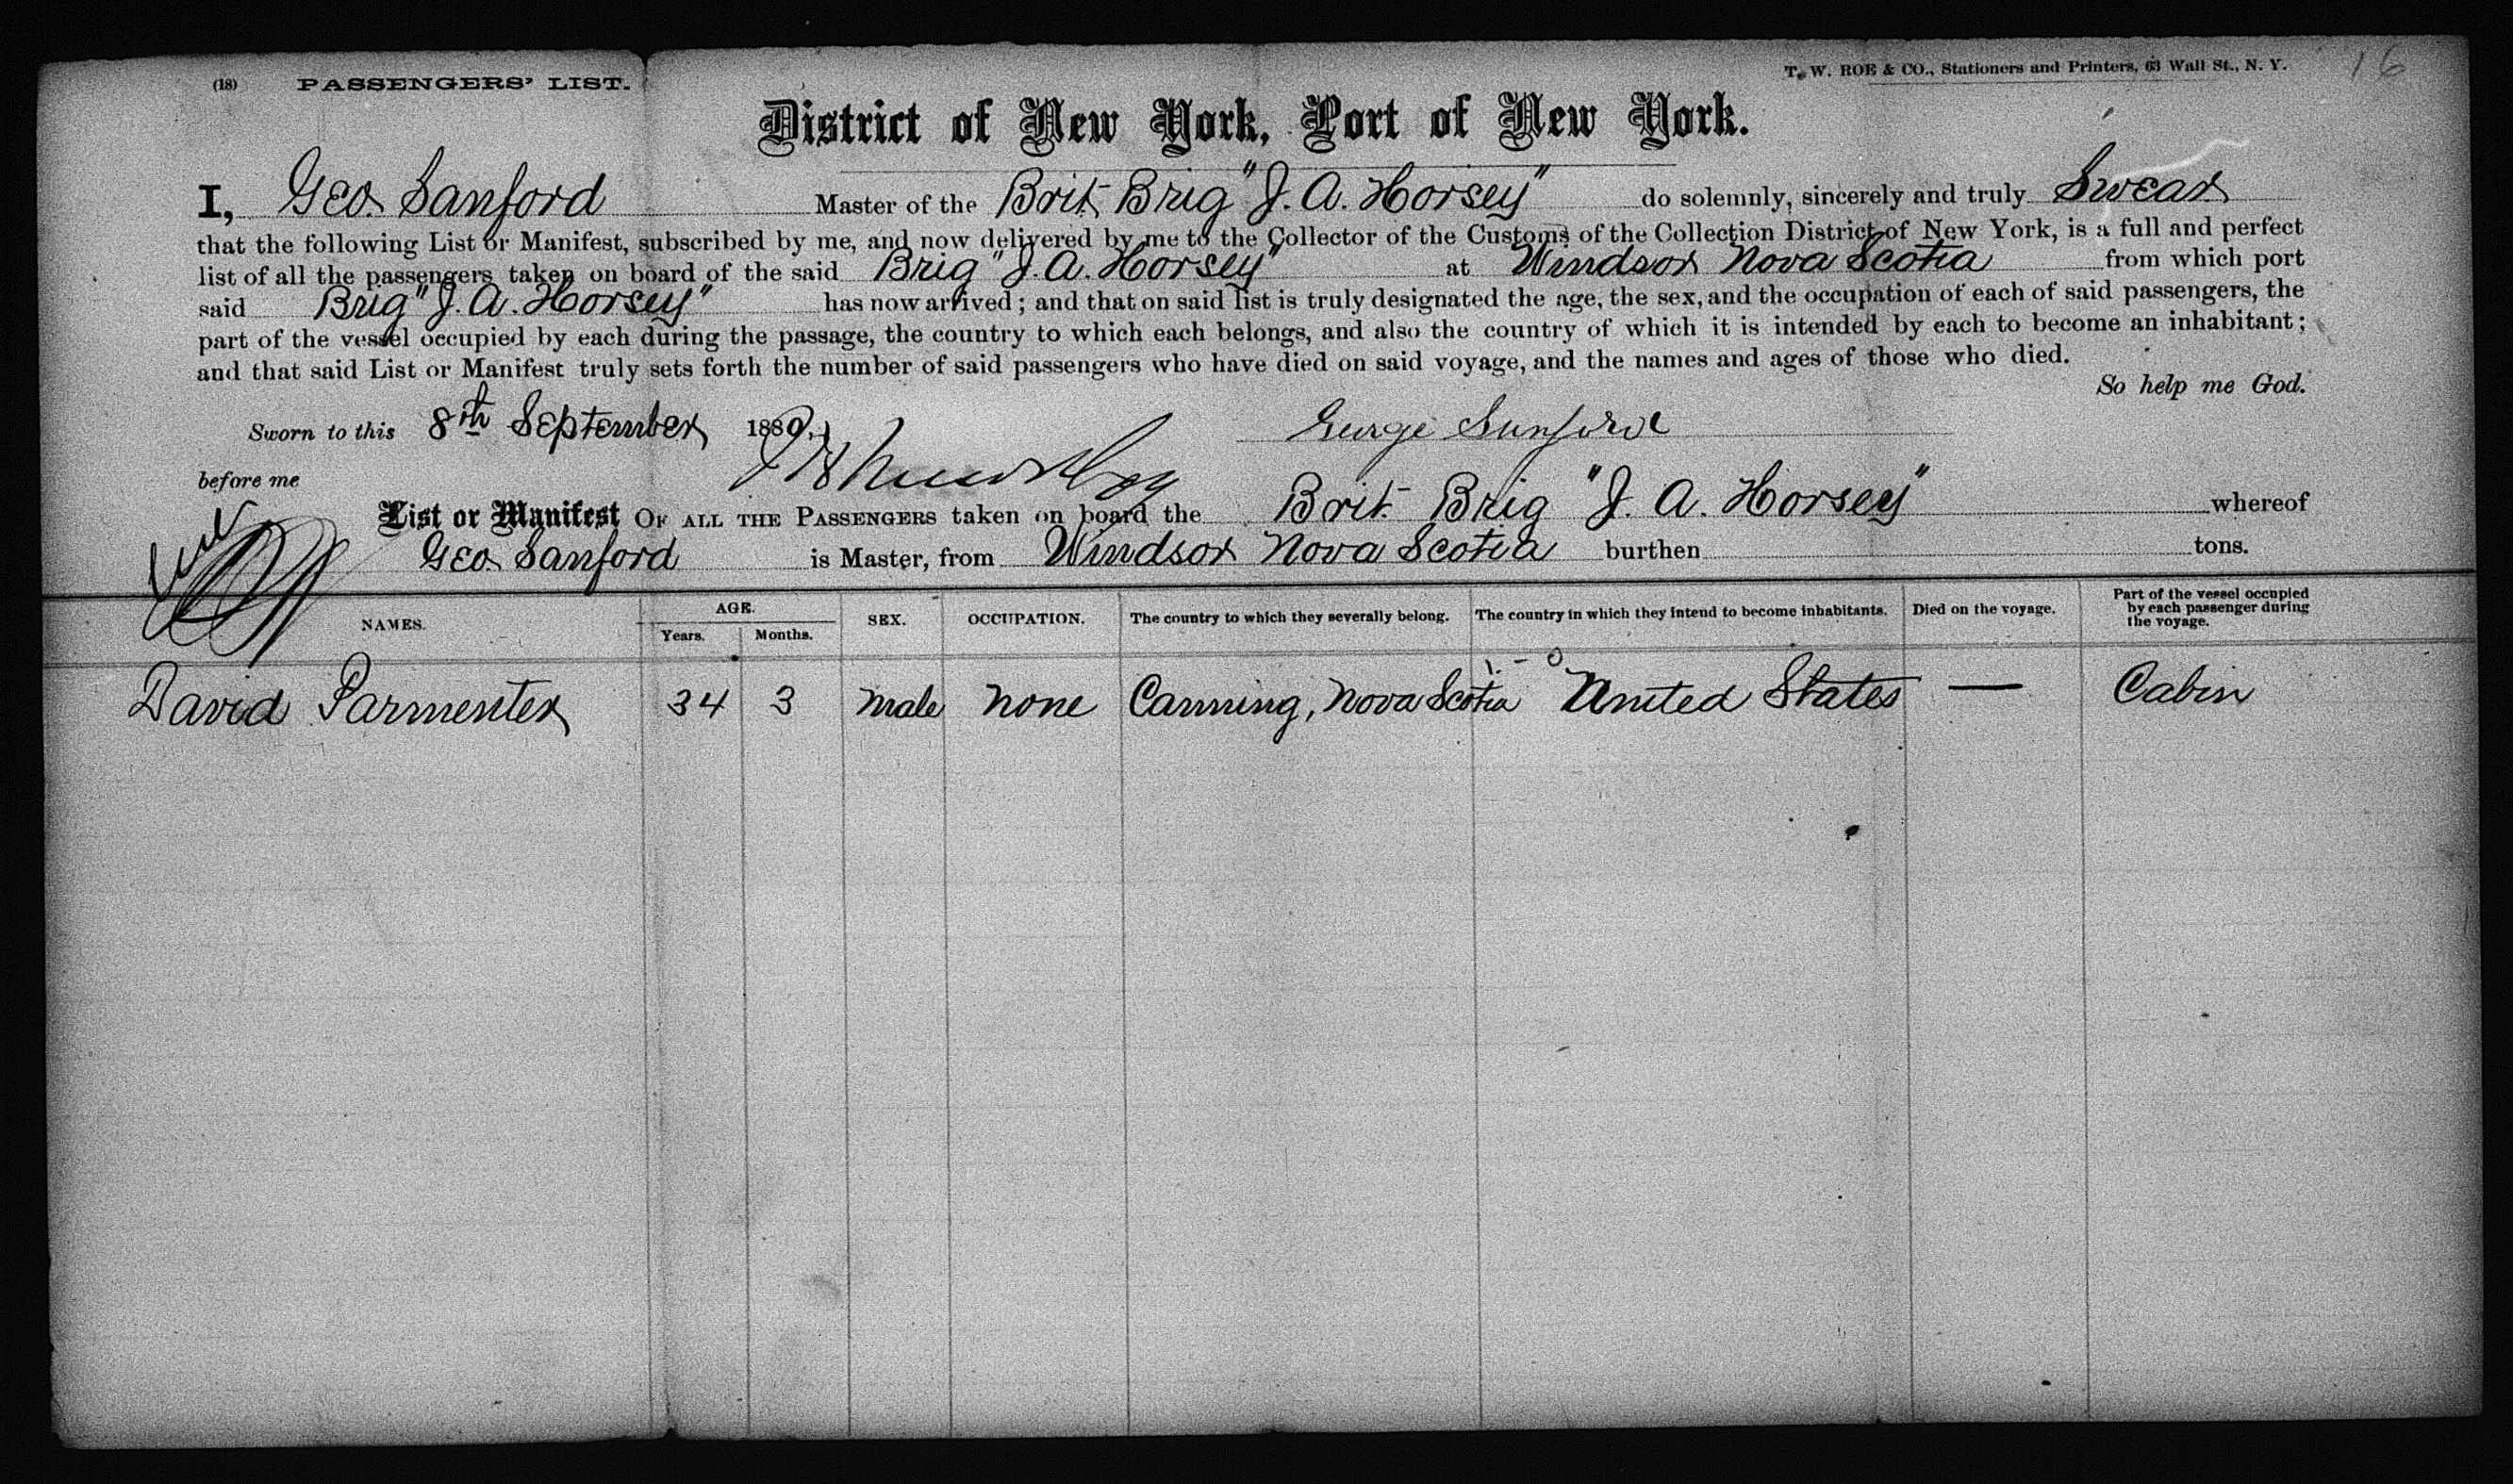 (18) PASSENGERS' LIST.
T. W. ROE & CO., Stationers and Printers, 63 Wall St., N. Y.
16
District of New York, Port of New York.
I, Geo. Sanford Master of the Brit Brig "J. A. Horsey" do solemnly, sincerely and truly Swear
that the following List or Manifest, subscribed by me, and now delivered by me to the Collector of the Customs of the Collection District of New York, is a full and perfect
list of all the passengers taken on board of the said Brig "J. A. Horsey" at Windsor Nova Scotia from which port
said Brig "J. A. Horsey" has now arrived; and that on said list is truly designated the age, the sex, and the occupation of each of said passengers, the
part of the vessel occupied by each during the passage, the country to which each belongs, and also the country of which it is intended by each to become an inhabitant;
and that said List or Manifest truly sets forth the number of said passengers who have died on said voyage, and the names and ages of those who died.
So help me God.
Sworn to this 8th September 1880. George Sanford
before me
List or Manifest OF ALL THE PASSENGERS taken on board the Brit. Brig "J. A. Horsey" whereof
Geo Sanford is Master, from Windsor Nova Scotia burthen tons.
NAMES. AGE. Years. Months. SEX. OCCUPATION. The country to which they severally belong. The country in which they intend to become inhabitants. Died on the voyage. Part of the vessel occupied by each passenger during the voyage.
David Parmenter 34 3 Male None Canning, Nova Scotia United States — Cabin